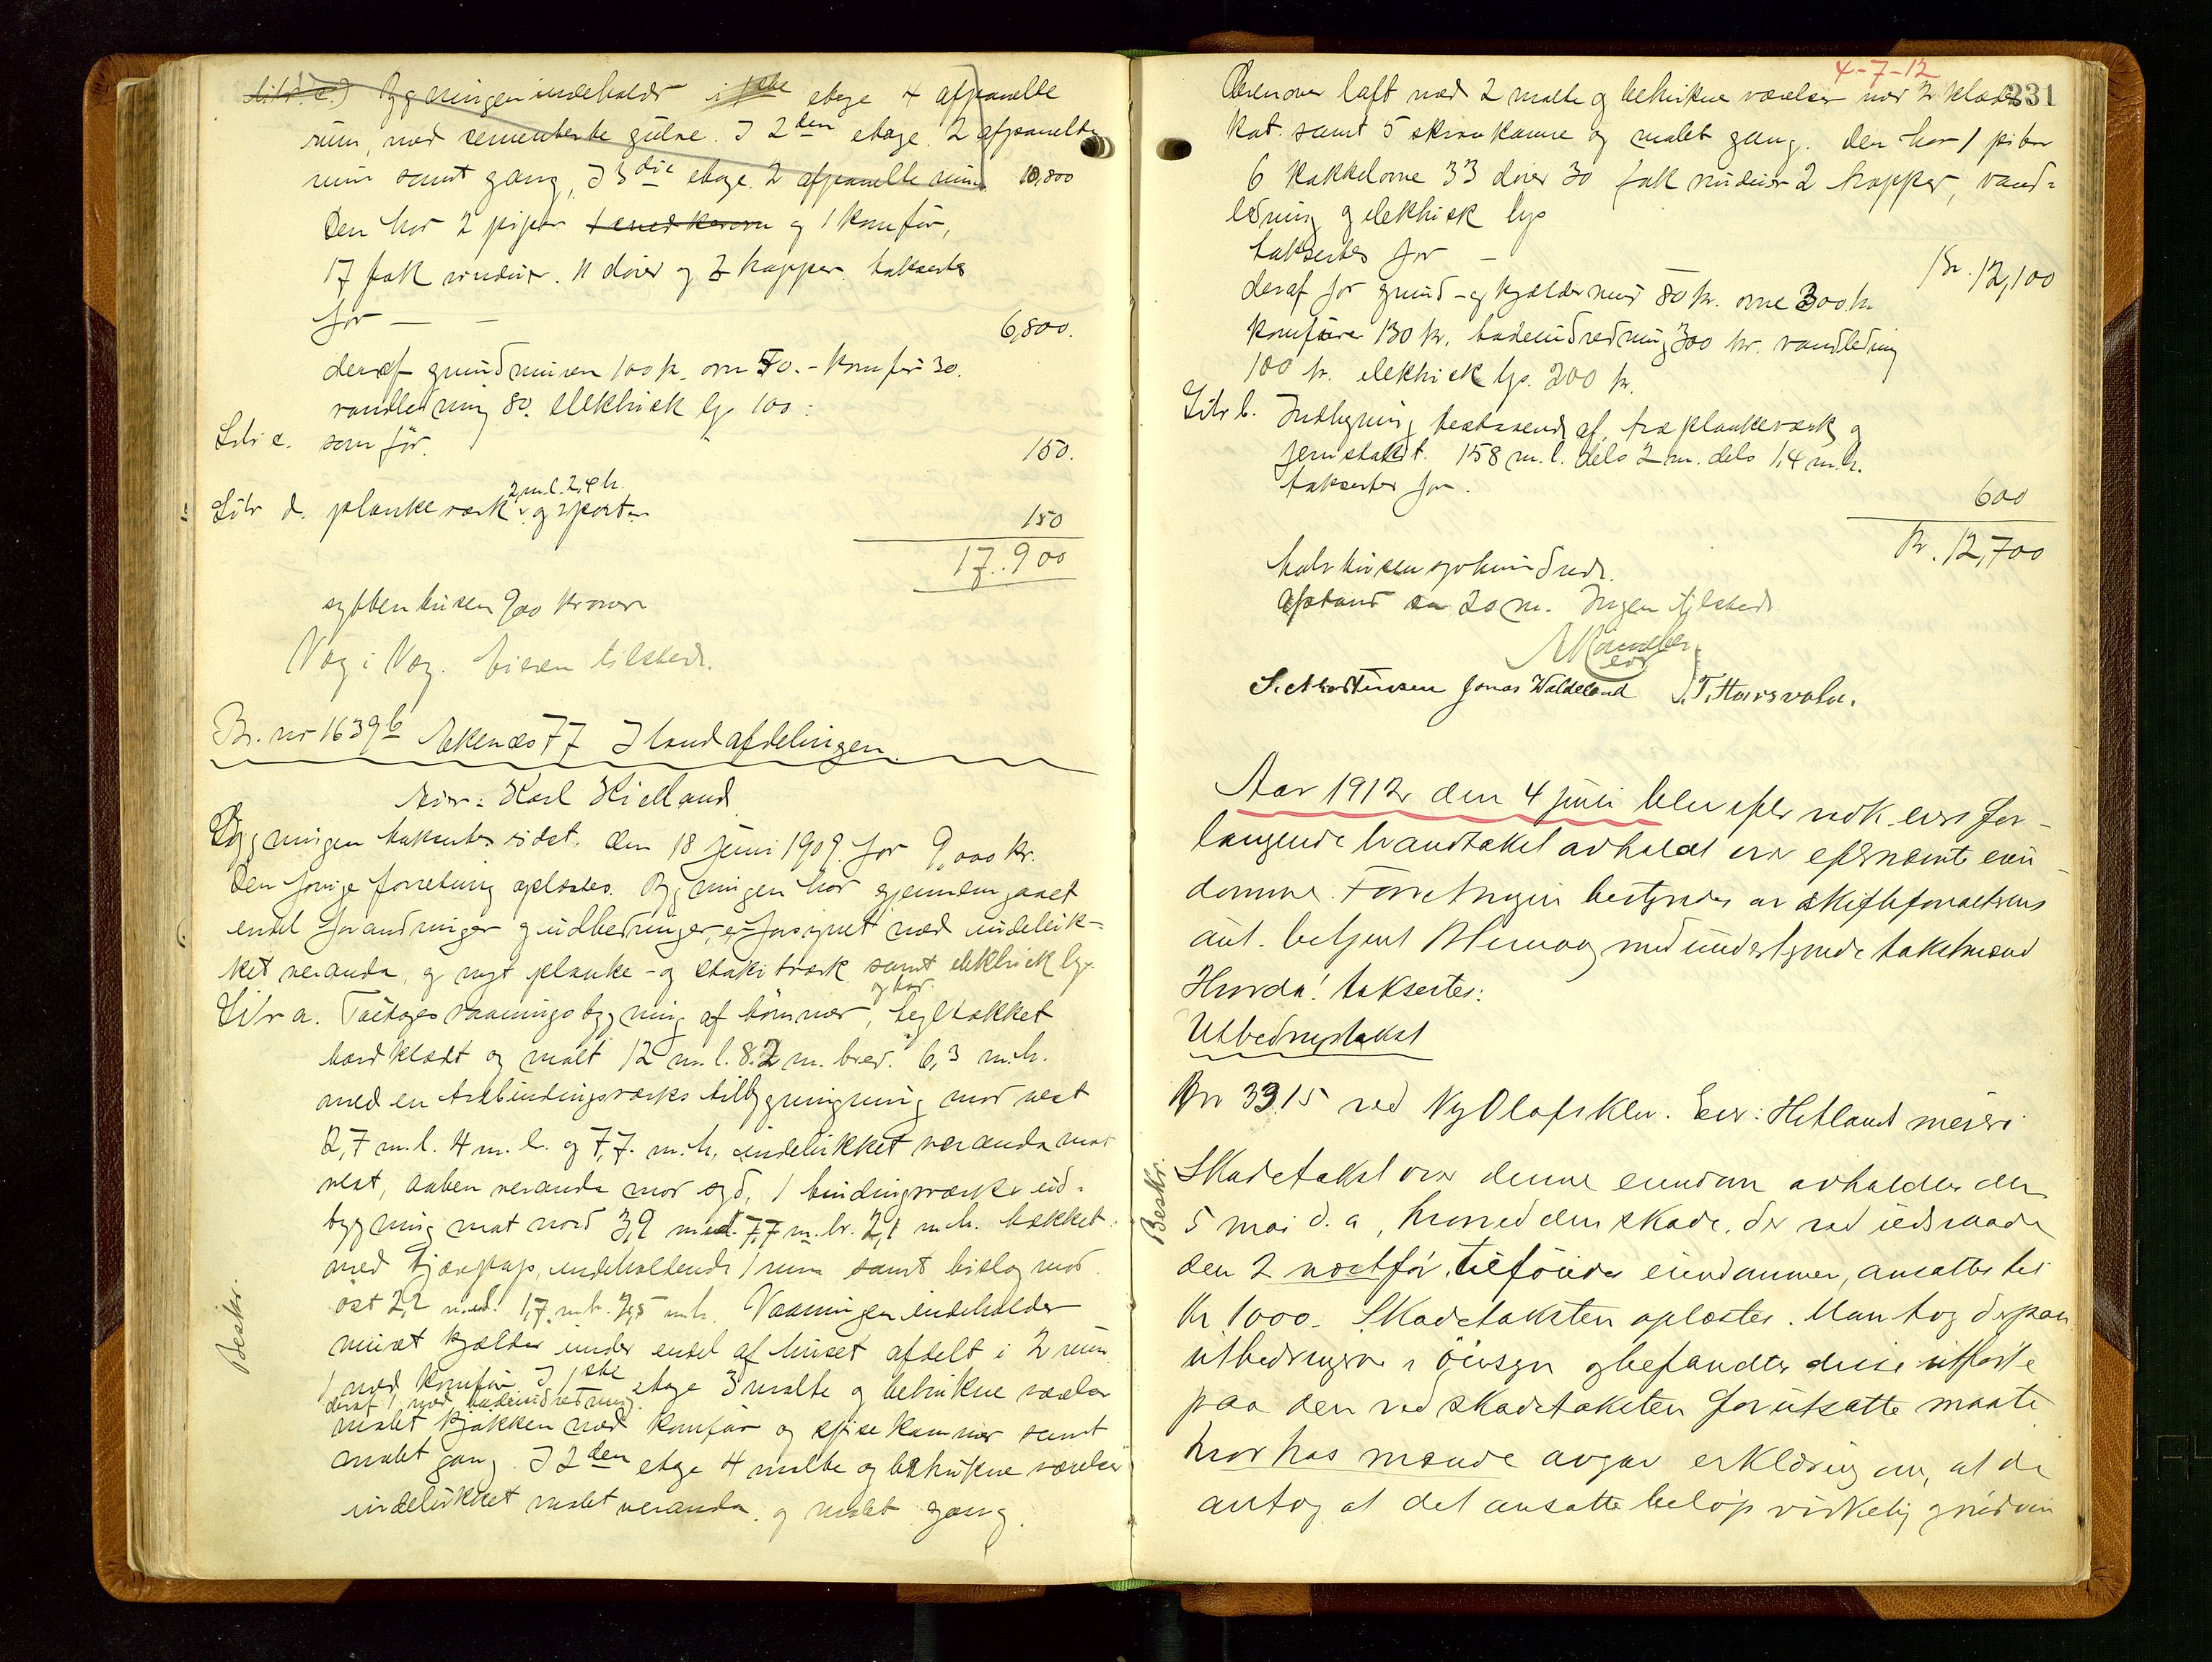 Litr. c.) Bygningen indeholder i 1ste etage 4 afpanelte
rum, med cementerte gulve. I 2den etage 2 afpanelte
rum samt gang, I 3die etage 2 afpanelte rum 10,800
Den har 2 piper og 1 komfür,
17 fak vinduer. 11 dører og 2 trapper taksertes
for — — 6,800.
deraf grundmuren 100 kr. ovn 50.- komfür 30.
vandledning 80. elektrisk lys 100:
Litr c. som før. 150.
2 m.l. 2,4 h.
Litr d. plankeværk og port 150
17.900
sytten tusen 900 kroner
Væg i Væg. Eieren tilstede.
Br. nr 1639b Ekenæs 77 I landafdelingen
Eier: Karl Kielland
Bygningen taksertes sidst. den 18 juni 1909. for 9,000 kr.
Den forrige forretning oplæstes. Bygningen har gjennemgaaet
endel forandringer og udbedringer, er forsynet med indeluk-
ket veranda, og nyt planke- og stakitværk samt elektrisk lys.
og har
Litr a. Toetages vaaningsbygning af tømmer, tegltækket
bordklædt og malt 12 m. l. 8.2 m. bred. 6,3 m.h.
med en utbindingsværks tilbygning mod vest
2,7 m.l. 4 m. b. og 7,7. m.h. indelukket veranda mot
vest, aaben veranda mod syd, 1 bindingsværks ud-
bygning mot nord 3,9 m.l. 7,7 m. br. 2,1 m.h. tækket
med tjærepap, indeholdende 1 rum samt bislag mod
øst 2,2 m.l. 1,7 m.br. 2,5 m.h. Vaaningen indeholder
muret kjælder under endel af huset afdelt i 2 rum
1 med komfür I 1ste etage 3 malte og betrukne værelser
deraf 1 med badeindredning
malet kjøkken med komfür og spisekammer samt
malet gang. I 2den etage 4 malte og betrukne værelser
indelukket malet veranda og malet gang.
Beskr.
4-7-12
231
Derover loft med 2 malte og betrukne værelser med 2 klædes
kot. samt 5 skraakamre og malet gang. Den har 1 pibe
6 kakkelovne 33 dører 30 fak vinduer 2 trapper, vand-
ledning og elektrisk lys
takseres for — Kr. 12,100
deraf for grund- og kjældermur 80 kr. ovne 300 kr
komfürer 130 kr. badeindredning 300 kr. vandledning
100 kr. elektrisk lys. 200 kr.
Litr b. Indhegning bestaaende af træplankeværk og
jernstakit. 158 m.l. dels 2 m. dels 1,4 m.h.
takseres for. 600
Kr. 12,700
tolv tusen syvhundrede.
Afstand ca 20 m. Ingen tilstede.
S. Mortensen Jonas Waldeland T. Haarsvalu.
Aar 1912 den 4 juli blev efter vedk. eiers for-
langende brandtakst avholdt over efternævnte eien
domme. Forretningen bestyredes av skifteforvalterens
aut. betjent med undertegnede takstmænd
Hvorda! taksertes:
Utbedringstakst
Br 3315 ved Ny Olafskleiv. Eier: Hetland meieri
Beskr.
Skadetakst over denne eiendom avholdtes den
5 mai d. a, hvorved den skade, der ved ildsvaade
den 2 næstfør tilføiedes eiendommen, ansattes til
Kr 1000. Skadetaksten oplæstes. Man tog derpaa
utbedringerne i øiesyn og befandtes disse utførte
paa den ved skadetaksten forutsatte maate
hvorhos mændene avgav erklæring om, at de
antog at det ansatte beløp virkelig og nødven